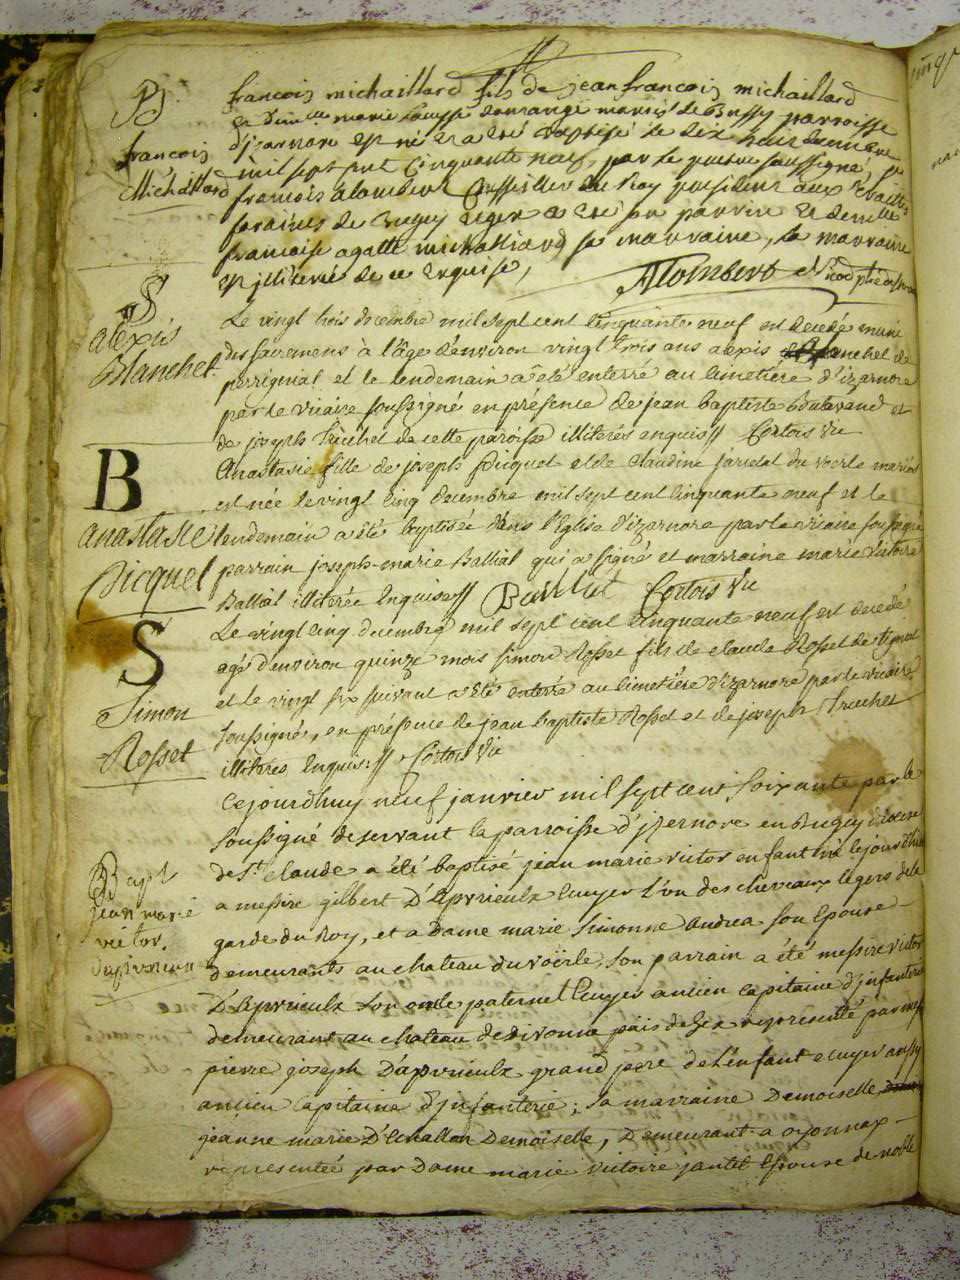 B
françois
Michaillard
françois michaillard fils de jean françois michaillard
et d'une marie Louyse domange mariés de Bussy parroisse
d'izarnore est né et a été baptisé le dix neuf decembre
mil sept cent cinquante neuf, par le vicaire soussigné,
françois alombert Conseiller du Roy president aux traittes
foraines de Bugey et gex a été son parrin et demlle
francoise agatte michalliard sa marraine, la marraine
illiterée de ce enquise, Alombert
S
alexis
Blanchet
Le vingt trois decembre mil sept cent cinquante neuf est decedé muni
des sacremens à l'âge d'environ vingt trois ans alexis Blanchet de
perrignial et le lendemain a été enterré au cimetière d'izarnore
par le vicaire soussigné en présence de jean baptiste Boulavand et
de joseph Truchet de cette paroisse illiterés enquis // Cortois Vic
B
anastasie
Picquet
Anastasie fille de joseph Picquet et de Claudine jaridet du voerle mariés
est née le vingt cinq decembre mil sept cent cinquante neuf et le
lendemain a été baptisée dans l'Eglise d'izarnore par le vicaire soussigné
parrain joseph-marie Balliat qui a signé et marraine marie victoire
Balliat illiterée enquise // Balliat Cortois Vic
S
Simon
Rosset
Le vingt cinq decembre mil sept cent cinquante neuf est decedé
agé d'environ quinze mois Simon Rosset fils de claude Rosset de tignat
et le vingt six suivant a été enterré au cimetière d'izarnore par le vicaire
soussigné, en présence de jean baptiste Rosset et de joseph Truchet
illitérés enquis // Cortois Vic
Bapt
jean marie
victor
Ce jourdhuy neuf janvier mil sept cent soixante par le
soussigné deservant la parroisse d'izernore en Bugey diocese
de St Claude a été baptisé jean marie victor enfant né le jour d'hier
a messire gilbert D'apvrieulx Ecuyer l'un des chevaux legers de la
garde du Roy, et a Dame marie Simonne Andrea son Epouse -
demeurants au chateau du voërle, son parrain a été messire victor
D'apvrieulx son oncle paternel Ecuyer ancien capitaine d'infanterie
demeurant au chateau de divonne païs de Gex représenté par mre
pierre joseph D'apvrieulx grand pere de l'enfant ecuyer aussy
ancien capitaine d'infanterie; sa marraine Demoiselle
jeanne marie D'Echallon Demoiselle, Demeurant a oyonnax -
representée par Dame marie victoire jantet Epouse de noble